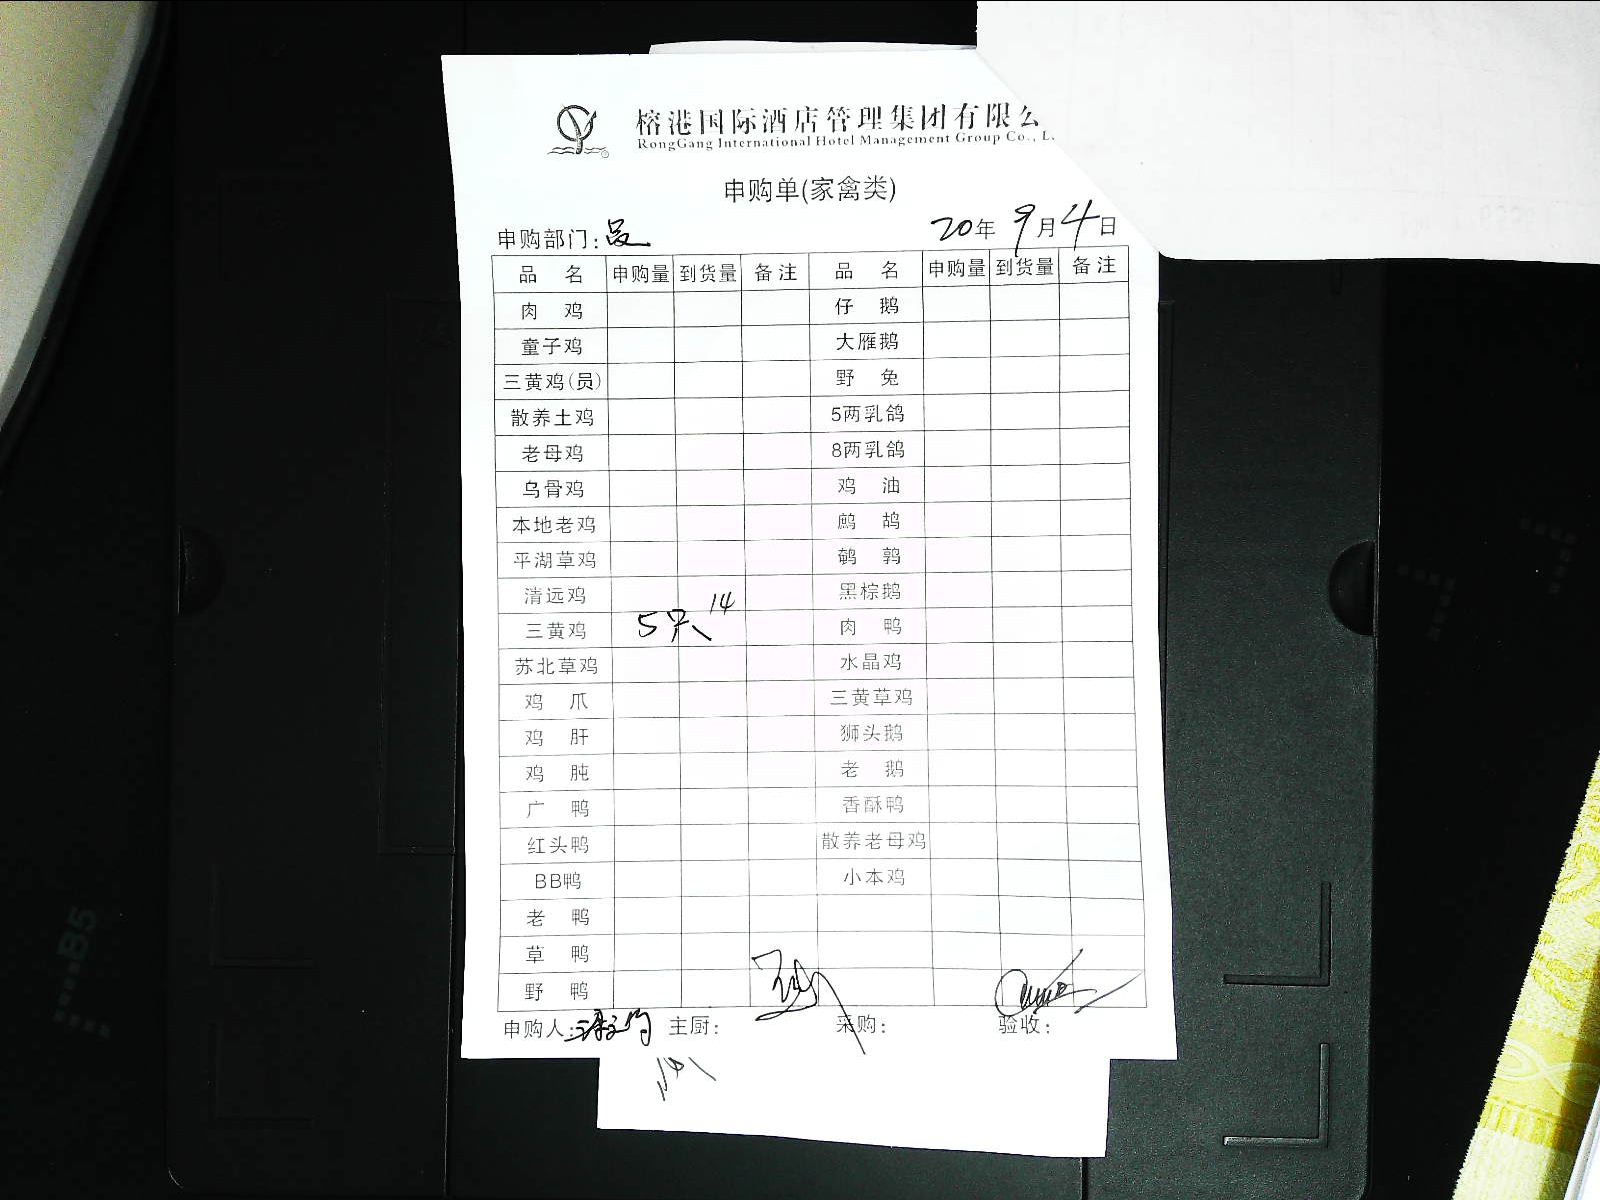 榕港国际酒店管理集团有限公
RongGang International Hotel Management Group Co., L
申购单(家禽类)
申购部门: 20年 9月4日
品 名 申购量 到货量 备注 品 名 申购量 到货量 备注
肉 鸡 仔 鹅
童子鸡 大雁鹅
三黄鸡(员) 野 兔
散养土鸡 5两乳鸽
老母鸡 8两乳鸽
乌骨鸡 鸡 油
本地老鸡 鹧 鸪
平湖草鸡 鹌 鹑
清远鸡 黑棕鹅
三黄鸡 5只 14 肉 鸭
苏北草鸡 水晶鸡
鸡 爪 三黄草鸡
鸡 肝 狮头鹅
鸡 肫 老 鹅
广 鸭 香酥鸭
红头鸭 散养老母鸡
BB鸭 小本鸡
老 鸭
草 鸭
野 鸭
申购人: 主厨: 采购: 验收:
B5